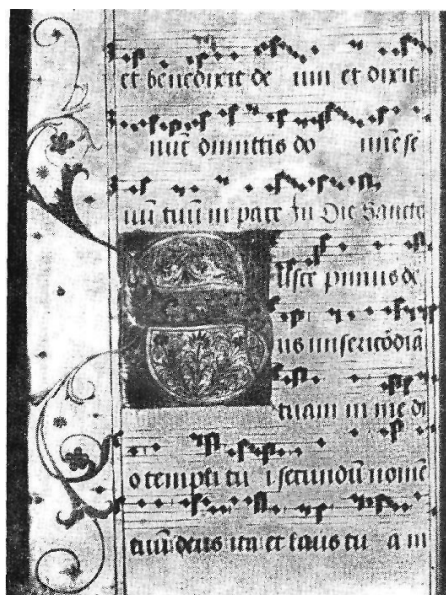 et benedixit de um et dixit
nūc dimittis do mine se
uū tuū in pace In Die Sancte
uscepimus de
us misericōdiā
tuam in medi
o templi tu i secundū nomē
tuū deus ita et laus tu a in